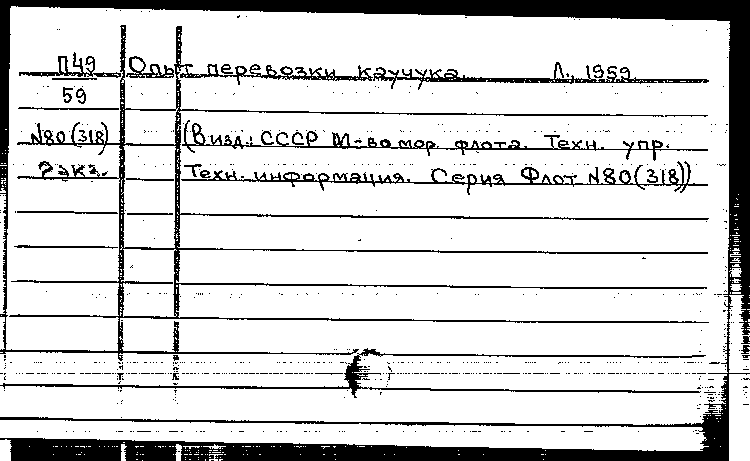 П49 Опыт перевозки каучука. Л., 1959.
59
N80(318) (В изд.: СССР М-во мор. флота. Техн. упр.
2 экз. Техн. информация. Серия Флот N80(318))